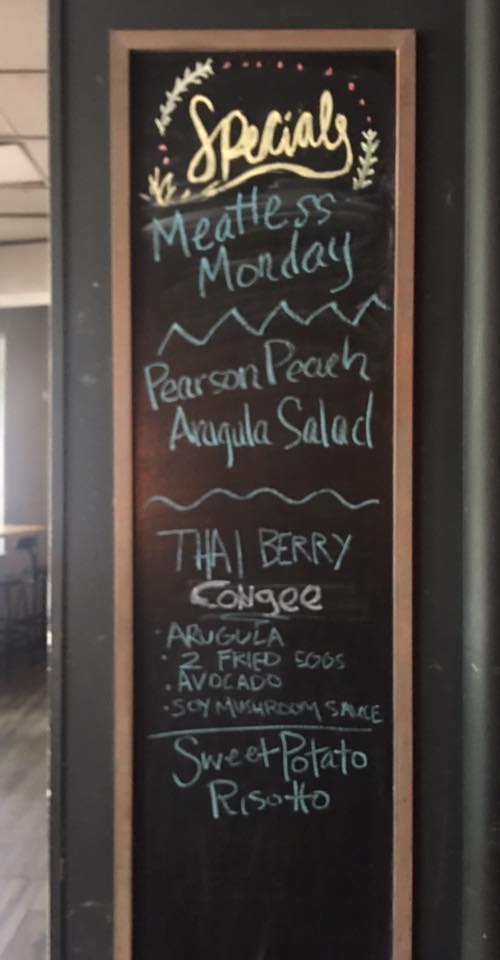 Specials
Meatless
Monday
Pearson Peach
Arugula Salad
THAI BERRY
Congee
· ARUGULA
· 2 FRIED EGGS
· AVOCADO
· SOY MUSHROOM SAUCE
Sweet Potato
Risotto